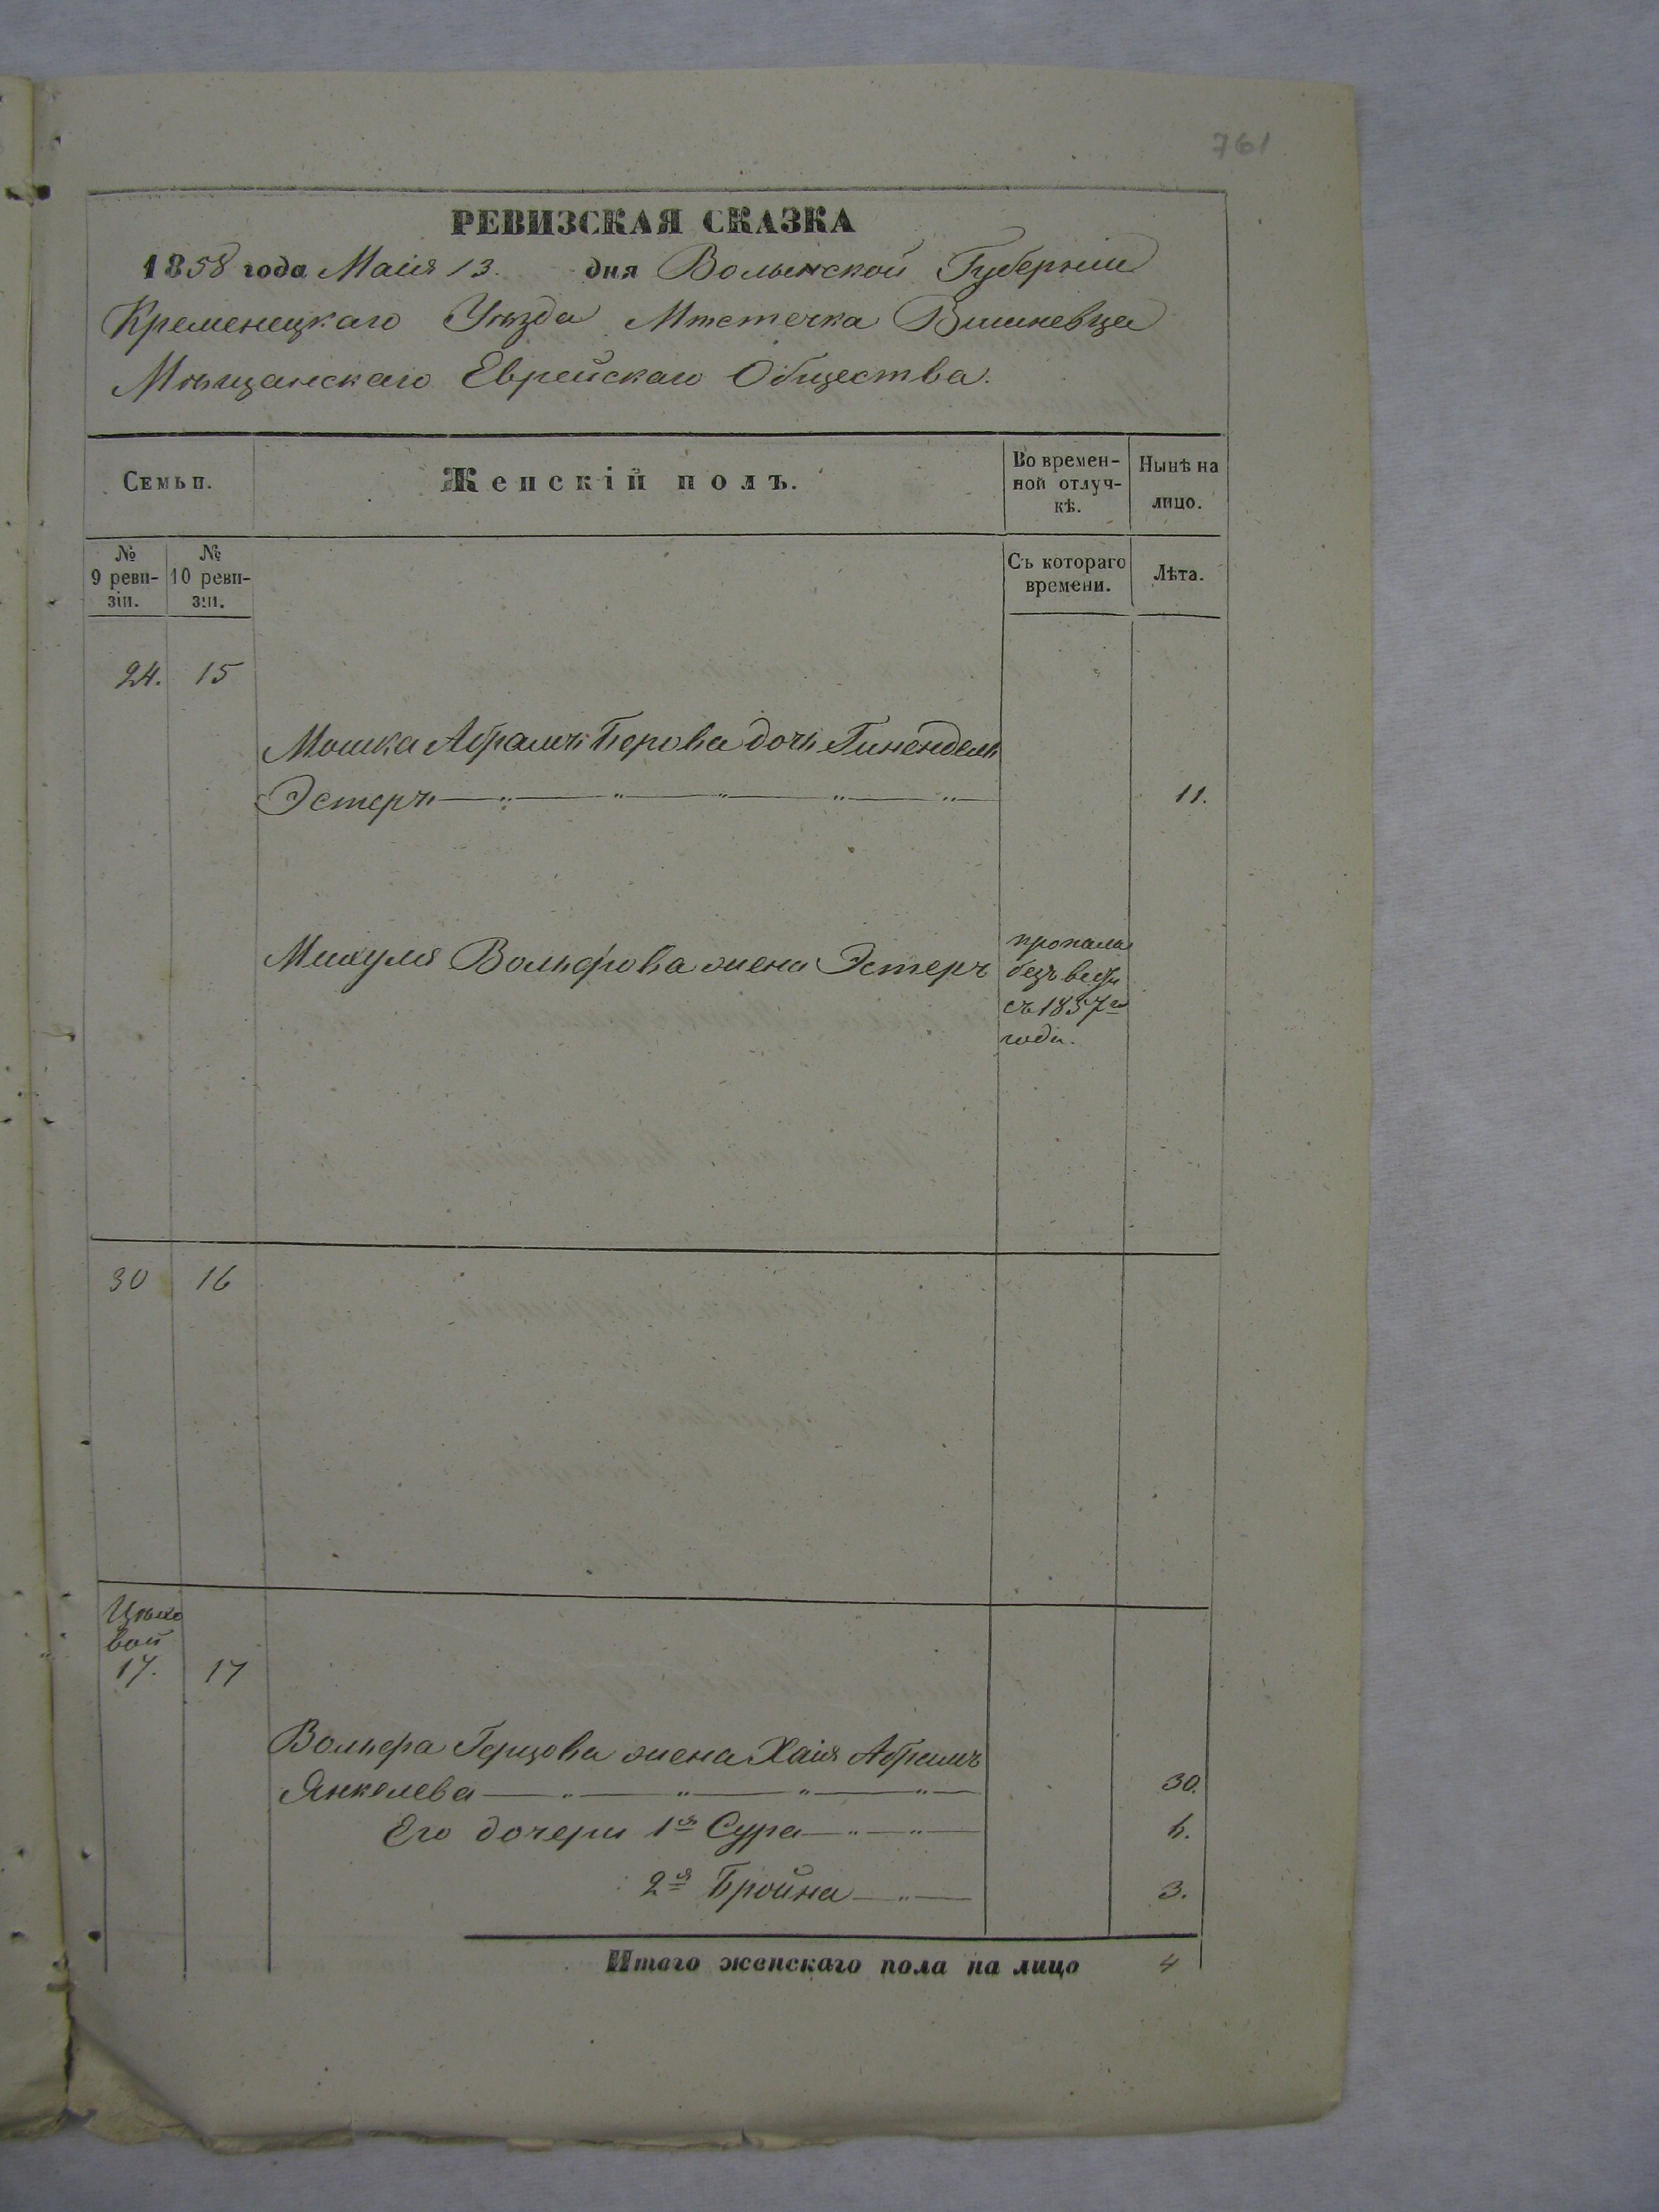 761
РЕВИЗСКАЯ СКАЗКА
1858 года Маія 13. дня Волынской Губерніи
Кременецкаго Уѣзда Мѣстечка Вишневца
Мѣщанскаго Еврейскаго Общества.
Семьи.
Женскій полъ.
Во времен-
ной отлуч-
кѣ.
Нынѣ на
лицо.
№
9 реви-
зіи.
№
10 реви-
зіи.
Съ котораго
времени.
Лѣта.
24. 15
Мошка Абрамъ Берова дочь Гинендель
Эстеръ 11.
Михуля Вольфова жена Эстеръ
пропала
безъ вести
съ 1857го
года.
30 16
17. 17
Герцова жена Хаія Абрамъ
Янкелева 30.
Его дочери 1я Сура
2я Бройна 3.
Итого женскаго пола на лицо 4